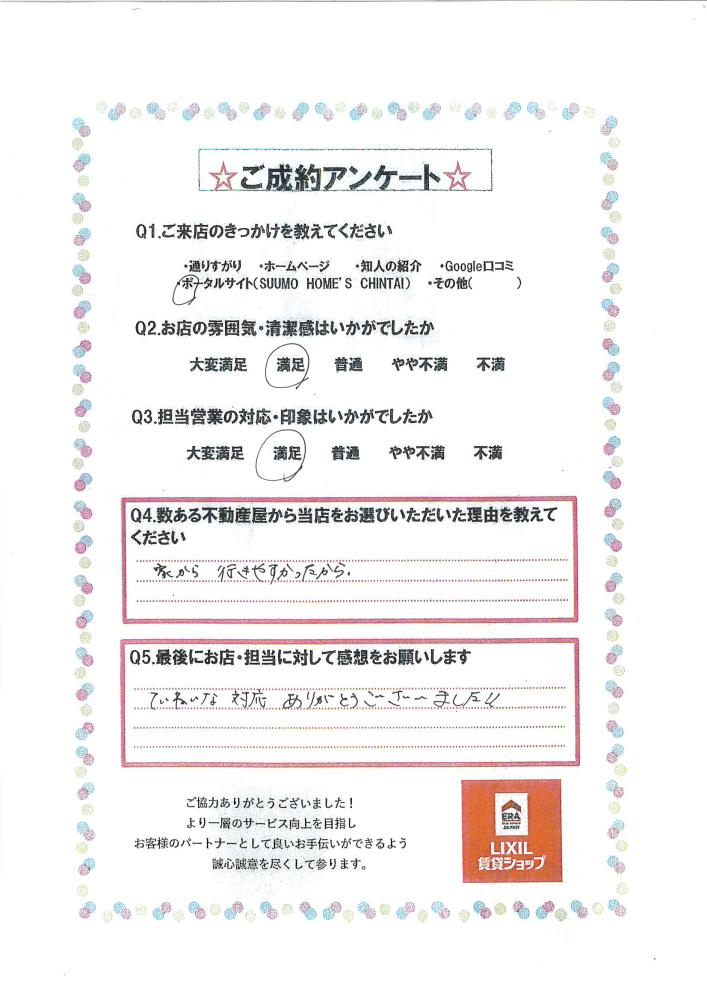 ☆ご成約アンケート☆
Q1.ご来店のきっかけを教えてください
・通りすがり ・ホームページ ・知人の紹介 ・Google口コミ
・ポータルサイト(SUUMO HOME'S CHINTAI) ・その他( )
Q2.お店の雰囲気・清潔感はいかがでしたか
大変満足 満足 普通 やや不満 不満
Q3.担当営業の対応・印象はいかがでしたか
大変満足 満足 普通 やや不満 不満
Q4.数ある不動産屋から当店をお選びいただいた理由を教えて
ください
家から 行きやすかったから.
Q5.最後にお店・担当に対して感想をお願いします
ていねいな 対応 ありがとうございました!!
ご協力ありがとうございました!
より一層のサービス向上を目指し
お客様のパートナーとして良いお手伝いができるよう
誠心誠意を尽くして参ります。
ERA
JAPAN
LIXIL
賃貸ショップ